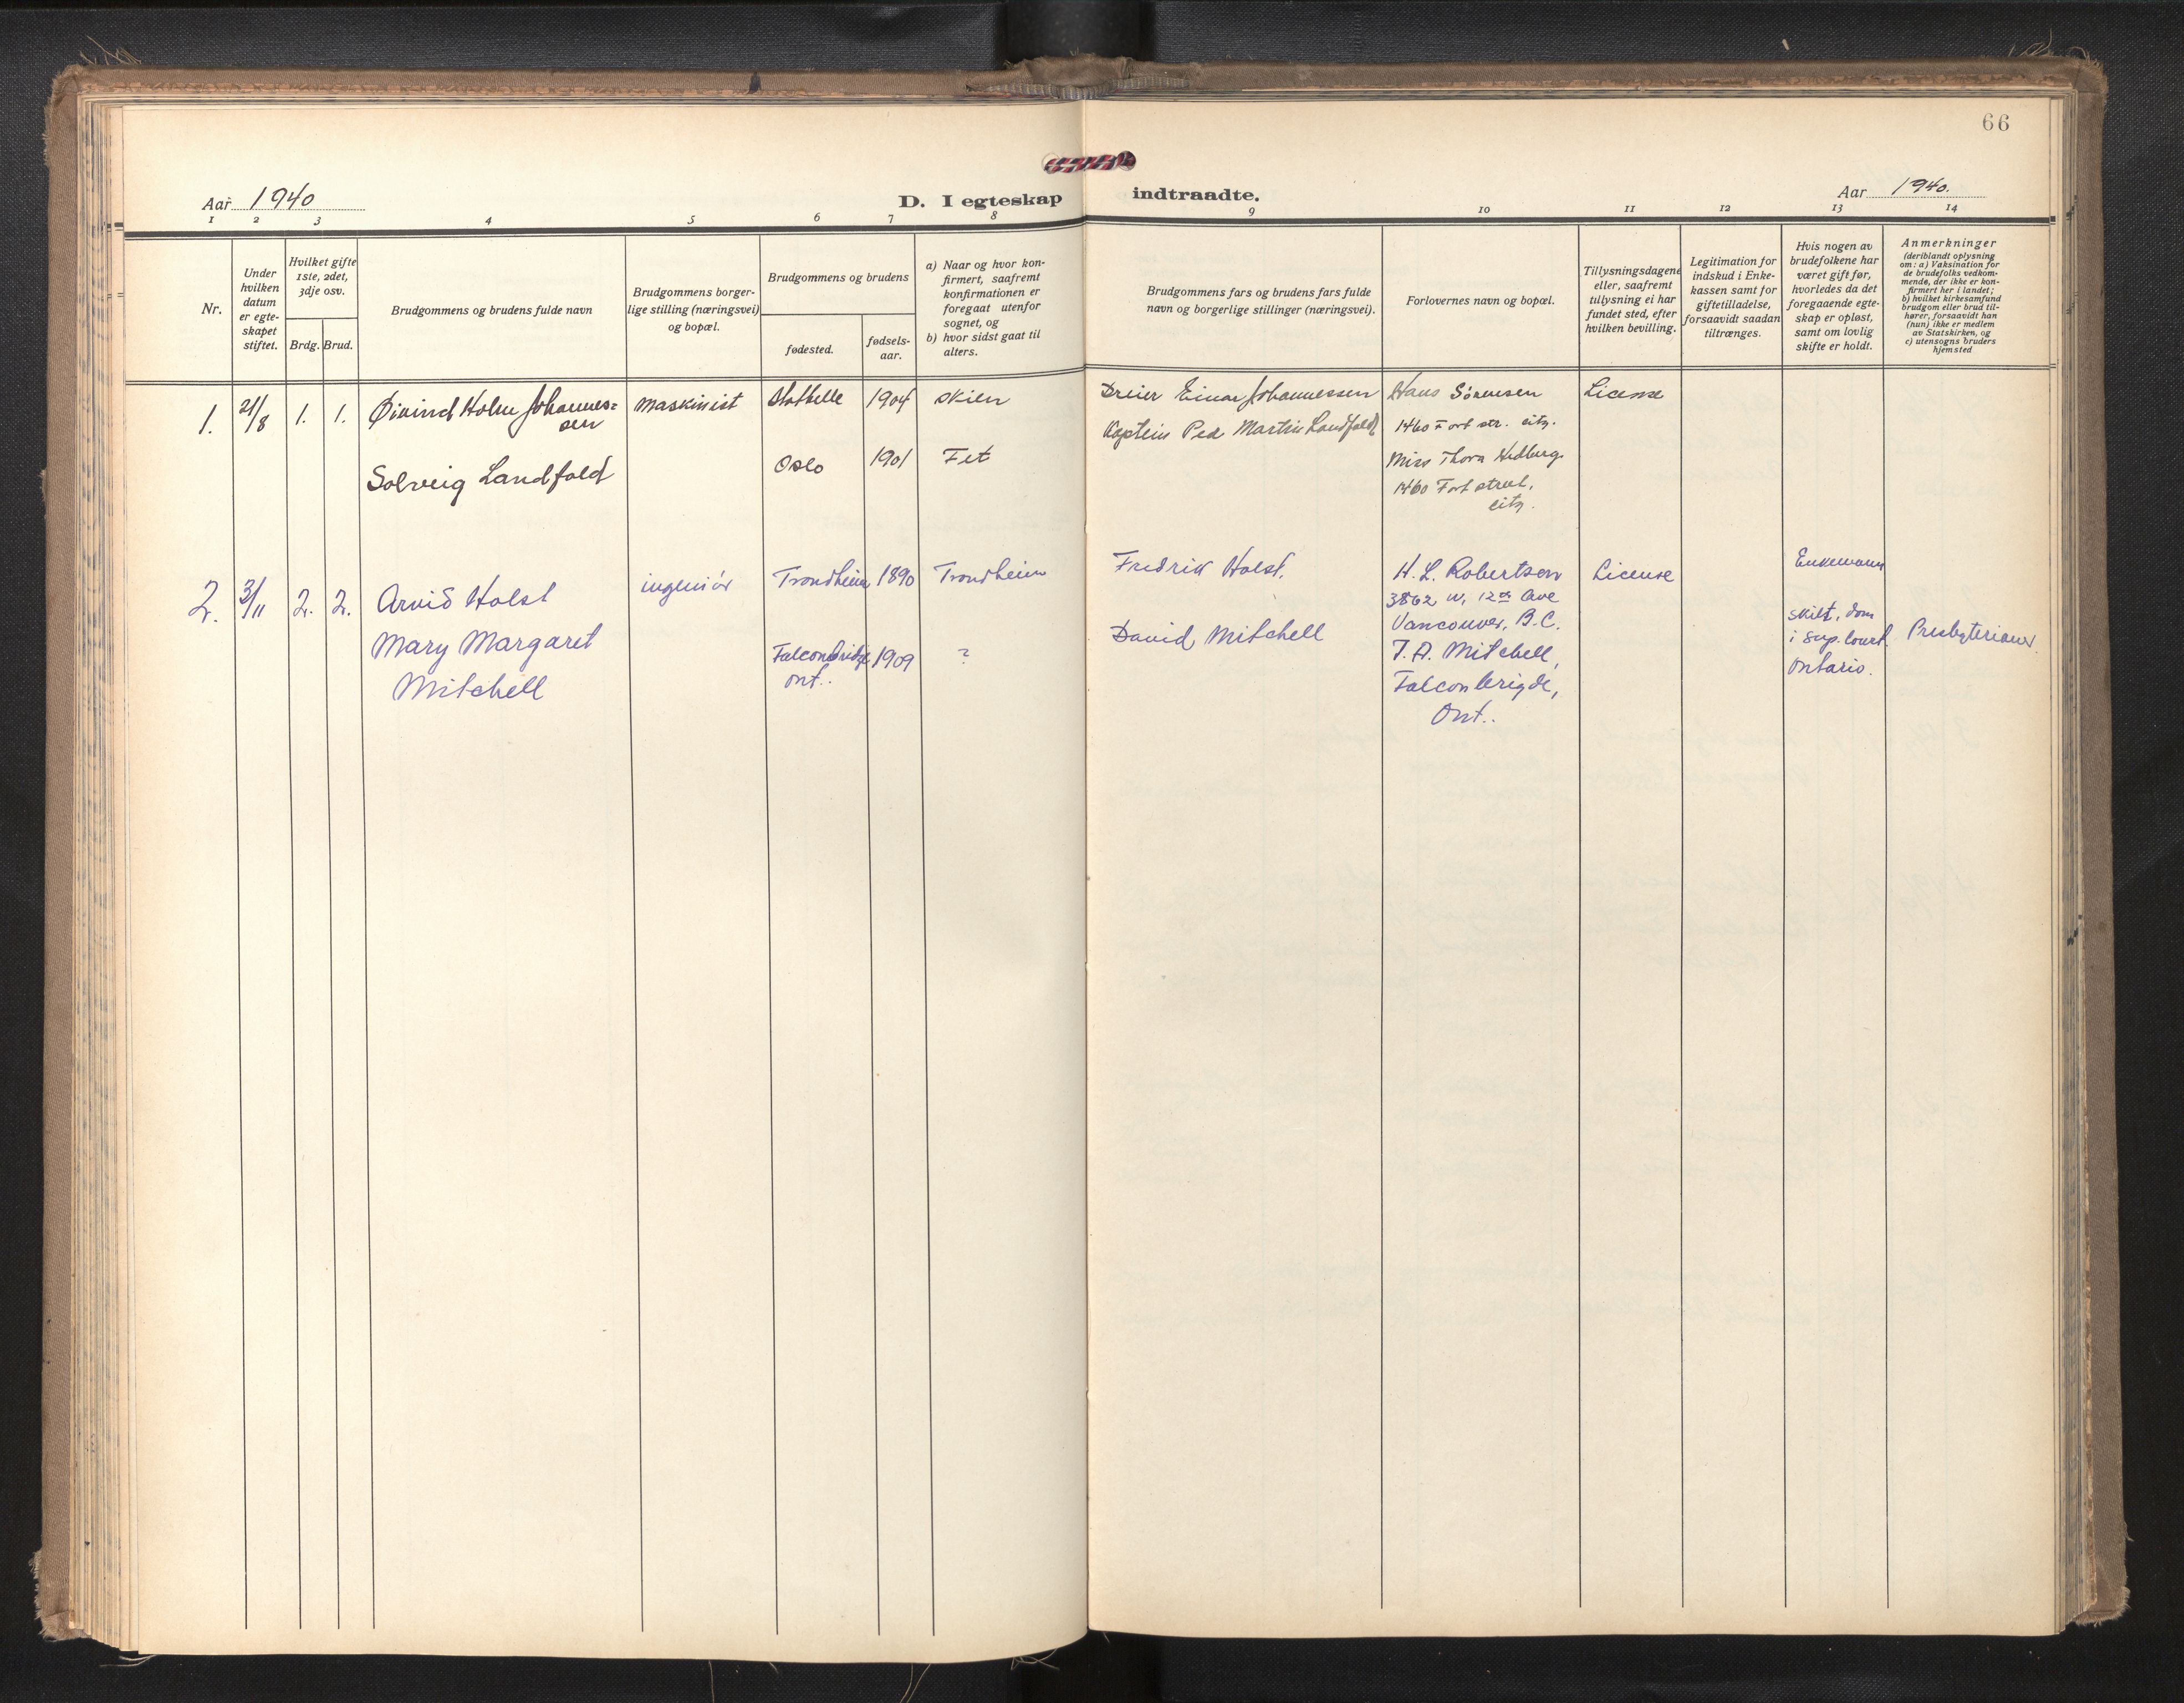 66
Aar 1940
D. I egteskap indtraadte.
Aar 1940.
1 2 3 4 5 6 7 8 9 10 11 12 13 14
Nr.
Under
hvilken
datum
er egte-
skapet
stiftet.
Hvilket gifte
1ste, 2det,
3dje osv.
Brdg. Brud.
Brudgommens og brudens fulde navn
Brudgommens borger-
lige stilling (næringsvei)
og bopæl.
Brudgommens og brudens
fødested.
fødsels-
aar.
a) Naar og hvor kon-
firmert, saafremt
konfirmationen er
foregaat utenfor
sognet, og
b) hvor sidst gaat til
alters.
Brudgommens fars og brudens fars fulde
navn og borgerlige stillinger (næringsvei).
Forlovernes navn og bopæl.
Tillysningsdagene
eller, saafremt
tillysning ei har
fundet sted, efter
hvilken bevilling.
Legitimation for
indskud i Enke-
kassen samt for
giftetilladelse,
forsaavidt saadan
tiltrænges.
Hvis nogen av
brudefolkene har
været gift før,
hvorledes da det
foregaaende egte-
skap er opløst,
samt om lovlig
skifte er holdt.
Anmerkninger
(deriblandt oplysning
om: a) Vaksination for
de brudefolks vedkom-
mende, der ikke er kon-
firmert her i landet;
b) hvilket kirkesamfund
brudgom eller brud til-
hører, forsaavidt han
(hun) ikke er medlem
av Statskirken, og
c) utensogns bruders
hjemsted
1. 21/8 1. 1.
Øivind Holm Johannes=
sen
Maskinist
Stathelle 1904 Skien
Solveig Landfald
Oslo 1901 Fet
Dreier Einar Johannessen
Kaptein Ped Martin Landfald
Hans Sörensen
1460 Fort str. city.
Miss Thora Hedberg
1460 Fort street,
city.
License
2. 3/11 2. 2.
Arvid Holst
ingeniör
Trondheim 1890 Trondheim
Mary Margaret
Mitchell
Falconbridge 1909 ?
Ont..
Fredrik Holst,
David Mitchell
H. L. Robertson
3862 W, 12th Ave
Vancouver, B.C.
T. A. Mitchell,
Falconbrigde,
Ont..
License
Enkemann
skilt, dom
i Sup. Court.
Ontario.
Presbyterianer